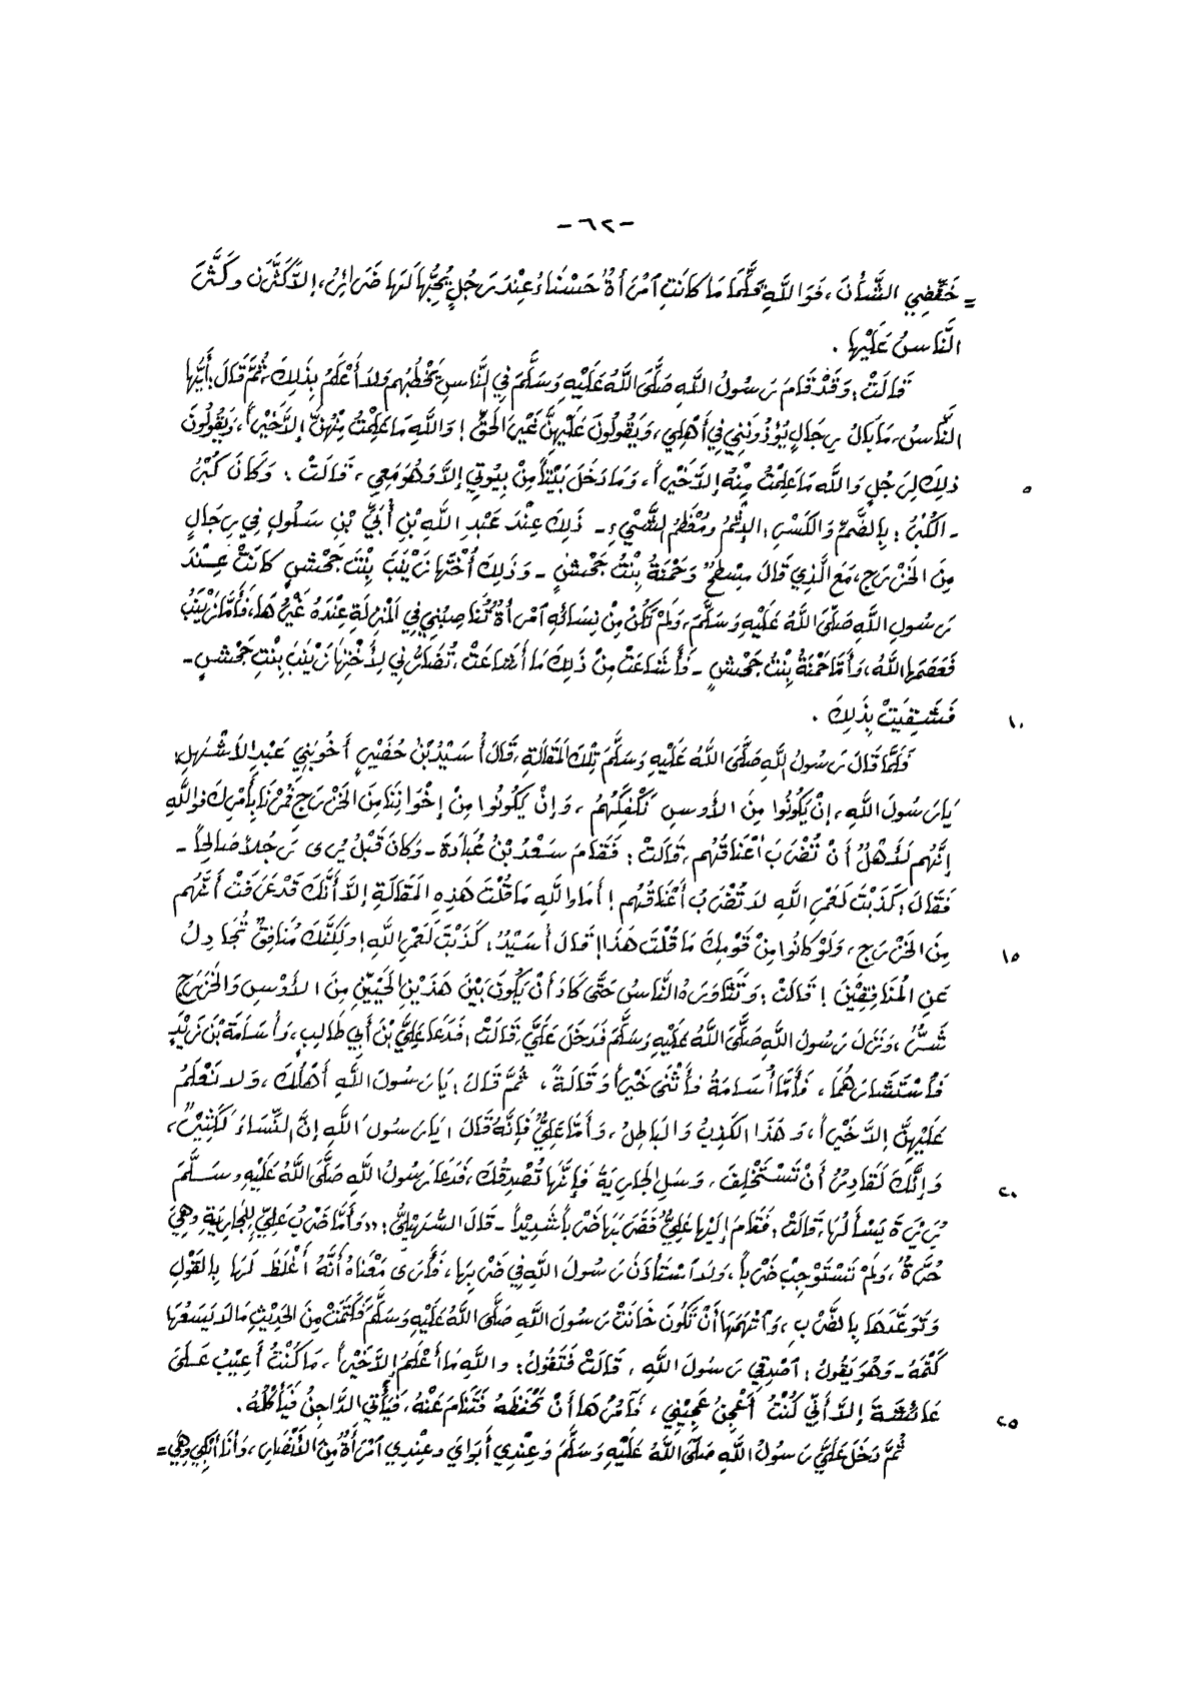 -٦٢-
= خَفِّضِي الشَّأْنَ، فَوَاللَّهِ قَلَّمَا مَا كَانَتِ ٱمْرَأَةٌ حَسْنَاءُ عِنْدَ رَجُلٍ يُحِبُّهَا لَهَا ضَرَائِرُ، إِلاَّ كَثَّرْنَ وَكَثَّرَ
النَّاسُ عَلَيْهَا .
قَالَتْ: وَقَدْ قَامَ رَسُولُ اللَّهِ صَلَّى اللَّهُ عَلَيْهِ وَسَلَّمَ فِي النَّاسِ يَخْطُبُهُم وَلاَ أَعْلَمُ بِذَلِكَ، ثُمَّ قَالَ: أَيُّهَا
النَّاسُ، مَا بَالُ رِجَالٍ يُؤْذُونَنِي فِي أَهْلِي، وَيَقُولُونَ عَلَيْهِنَّ غَيْرَ الحَقِّ! وَاللَّهِ مَا عَلِمْتُ مِنْهُنَّ إِلاَّ خَيْراً، وَيَقُولُونَ
ذَلِكَ لِرَجُلٍ وَاللَّهِ مَا عَلِمْتُ مِنْهُ إِلاَّ خَيْراً، وَمَا دَخَلَ بَيْتاً مِنْ بُيُوتِي إِلاَّ وَهُوَ مَعِي، قَالَتْ: وَكَانَ كُبْرُ ٥
- الكُبْرُ: بِالضَّمِّ وَالكَسْرِ: الإِثْمُ وَمُعْظَمُ الشَّيْءِ - ذَلِكَ عِنْدَ عَبْدِ اللَّهِ بْنِ أُبَيِّ بْنِ سَلُولٍ فِي رِجَالٍ
مِنَ الخَزْرَجِ، مَعَ الَّذِي قَالَ مِسْطَحٌ وَحَمْنَةُ بِنْتُ جَحْشٍ - وَذَلِكَ أُخْتَهَا زَيْنَبَ بِنْتَ جَحْشٍ كَانَتْ عِنْدَ
رَسُولِ اللَّهِ صَلَّى اللَّهُ عَلَيْهِ وَسَلَّمَ، وَلَمْ تَكُنْ مِنْ نِسَائِهِ ٱمْرَأَةٌ تُنَاصِبُنِي فِي المَنْزِلَةِ عِنْدَهُ غَيْرُهَا، فَأَمَّا زَيْنَبُ
فَعَصَمَهَا اللَّهُ، وَأَمَّا حَمْنَةُ بِنْتُ جَحْشٍ - فَأَشَاعَتْ مِنْ ذَلِكَ مَا أَشَاعَتْ، تُضَارُّنِي لِأُخْتِهَا زَيْنَبَ بِنْتِ جَحْشٍ -
فَشَقِيَتْ بِذَلِكَ . ١٠
فَلَمَّا قَالَ رَسُولُ اللَّهِ صَلَّى اللَّهُ عَلَيْهِ وَسَلَّمَ تِلْكَ المَقَالَةِ، قَالَ أُسَيْدُ بْنُ حُضَيْرٍ أَخُو بَنِي عَبْدِ الأَشْهَلِ:
يَا رَسُولَ اللَّهِ، إِنْ يَكُونُوا مِنَ الأَوْسِ نَكْفِكَهُمْ، وَإِنْ يَكُونُوا مِنْ إِخْوَانِنَا مِنَ الخَزْرَجِ فَمُرْنَا بِأَمْرِكَ فَوَاللَّهِ
إِنَّهُم لَأَهْلٌ أَنْ تُضْرَبَ أَعْنَاقُهُم، قَالَتْ: فَقَامَ سَعْدُ بْنُ عُبَادَةَ - وَكَانَ قَبْلُ يُرَى رَجُلاً صَالِحاً -
فَقَالَ: كَذَبْتَ لَعَمْرُ اللَّهِ لاَ تُضْرَبُ أَعْنَاقُهُم! أَمَا وَاللَّهِ مَا قُلْتَ هَذِهِ المَقَالَةِ إِلاَّ أَنَّكَ قَدْ عَرَفْتَ أَنَّهُم
مِنَ الخَزْرَجِ، وَلَوْ كَانُوا مِنْ قَوْمِكَ مَا قُلْتَ هَذَا! قَالَ أُسَيْدٌ: كَذَبْتَ لَعَمْرُ اللَّهِ! وَلَكِنَّكَ مُنَافِقٌ تُجَادِلُ ١٥
عَنِ المُنَافِقِينَ! قَالَتْ: وَتَثَاوَرَهُ النَّاسُ حَتَّى كَادَ أَنْ يَكُونَ بَيْنَ هَذَيْنِ الحَيَّيْنِ مِنَ الأَوْسِ وَالخَزْرَجِ
شَرٌّ، وَنَزَلَ رَسُولُ اللَّهِ صَلَّى اللَّهُ عَلَيْهِ وَسَلَّمَ فَدَخَلَ عَلَيَّ، قَالَتْ: فَدَعَا عَلِيَّ بْنَ أَبِي طَالِبٍ، وَأُسَامَةَ بْنَ زَيْدٍ
فَٱسْتَشَارَهُمَا، فَأَمَّا أُسَامَةُ فَأَثْنَى خَيْراً وَقَالَهُ، ثُمَّ قَالَ: يَا رَسُولَ اللَّهِ أَهْلُكَ، وَلاَ نَعْلَمُ
عَلَيْهِنَّ إِلاَّ خَيْراً، وَهَذَا الكَذِبُ وَالبَاطِلُ، وَأَمَّا عَلِيٌّ فَإِنَّهُ قَالَ: يَا رَسُولَ اللَّهِ إِنَّ النِّسَاءَ لَكَثِيرٌ،
وَإِنَّكَ لَقَادِرٌ أَنْ تَسْتَخْلِفَ، وَسَلِ الجَارِيَةَ فَإِنَّهَا تُصْدِقُكَ، فَدَعَا رَسُولُ اللَّهِ صَلَّى اللَّهُ عَلَيْهِ وَسَلَّمَ ٢٠
بُرَيْرَةَ يَسْأَلُهَا، قَالَتْ: فَقَامَ إِلَيْهَا عَلِيٌّ فَضَرَبَهَا ضَرْباً شَدِيْداً - قَالَ السُّهَيْلِيُّ: ((وَأَمَّا ضَرْبُ عَلِيٍّ لِلْجَارِيَةِ وَهِيَ
حُرَّةٌ، وَلَمْ تَسْتَوْجِبْ ضَرْباً، وَلاَ ٱسْتَأْذَنَ رَسُولَ اللَّهِ فِي ضَرْبِهَا، فَأَرَى مَعْنَاهُ أَنَّهُ أَغْلَظَ لَهَا بِالقَوْلِ
وَتَوَعَّدَهَا بِالضَّرْبِ، وَٱتَّهَمَهَا أَنْ تَكُونَ خَانَتْ رَسُولَ اللَّهِ صَلَّى اللَّهُ عَلَيْهِ وَسَلَّمَ فَكَتَمَتْ مِنَ الحَدِيْثِ مَا لاَ يَسَعُهَا
كَتْمُهُ - وَهُوَ يَقُولُ: ٱصْدِقِي رَسُولَ اللَّهِ، قَالَتْ فَتَقُولُ: وَاللَّهِ مَا أَعْلَمُ إِلاَّ خَيْراً، مَا كُنْتُ أَعِيْبُ عَلَى
عَائِشَةَ إِلاَّ أَنِّي كُنْتُ أَعْجِنُ عَجِيْنِي، فَآمُرُهَا أَنْ تَحْفَظَهُ فَتَنَامَ عَنْهُ، فَيَأْتِي الدَّاجِنُ فَيَأْكُلُهُ . ٢٥
ثُمَّ دَخَلَ عَلَيَّ رَسُولُ اللَّهِ صَلَّى اللَّهُ عَلَيْهِ وَسَلَّمَ وَعِنْدِي أَبَوَايَ وَعِنْدِي ٱمْرَأَةٌ مِنَ الأَنْصَارِ، وَأَنَا أَبْكِي وَهِيَ =